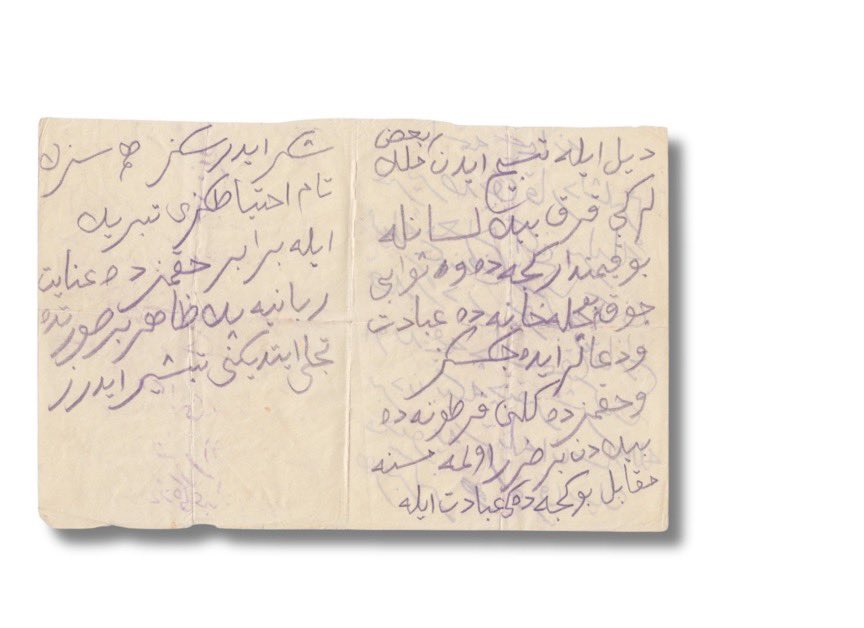 دیل ایله تسبیح ایدن بعض ملك
لر كبی قرق بیك لسانله
بو قیمتدار كجه ده وه ثوابی
چوق چله خانه ده عبادت
ودعالر ایده جكسكز
وحقمزده كلی فرطونه ده
بیك دن بر ضرر اولمه مسنه
مقابل بو كجه ده كی عبادت ایله
شكر ایدرسكز هم سزك
تام احتیاطكزی تبریك
ایله برابر حقمزده عنایت
ربانیه پك ظاهر بر صورتده
تجلی ایتدیكنی تبشیر ایدرز